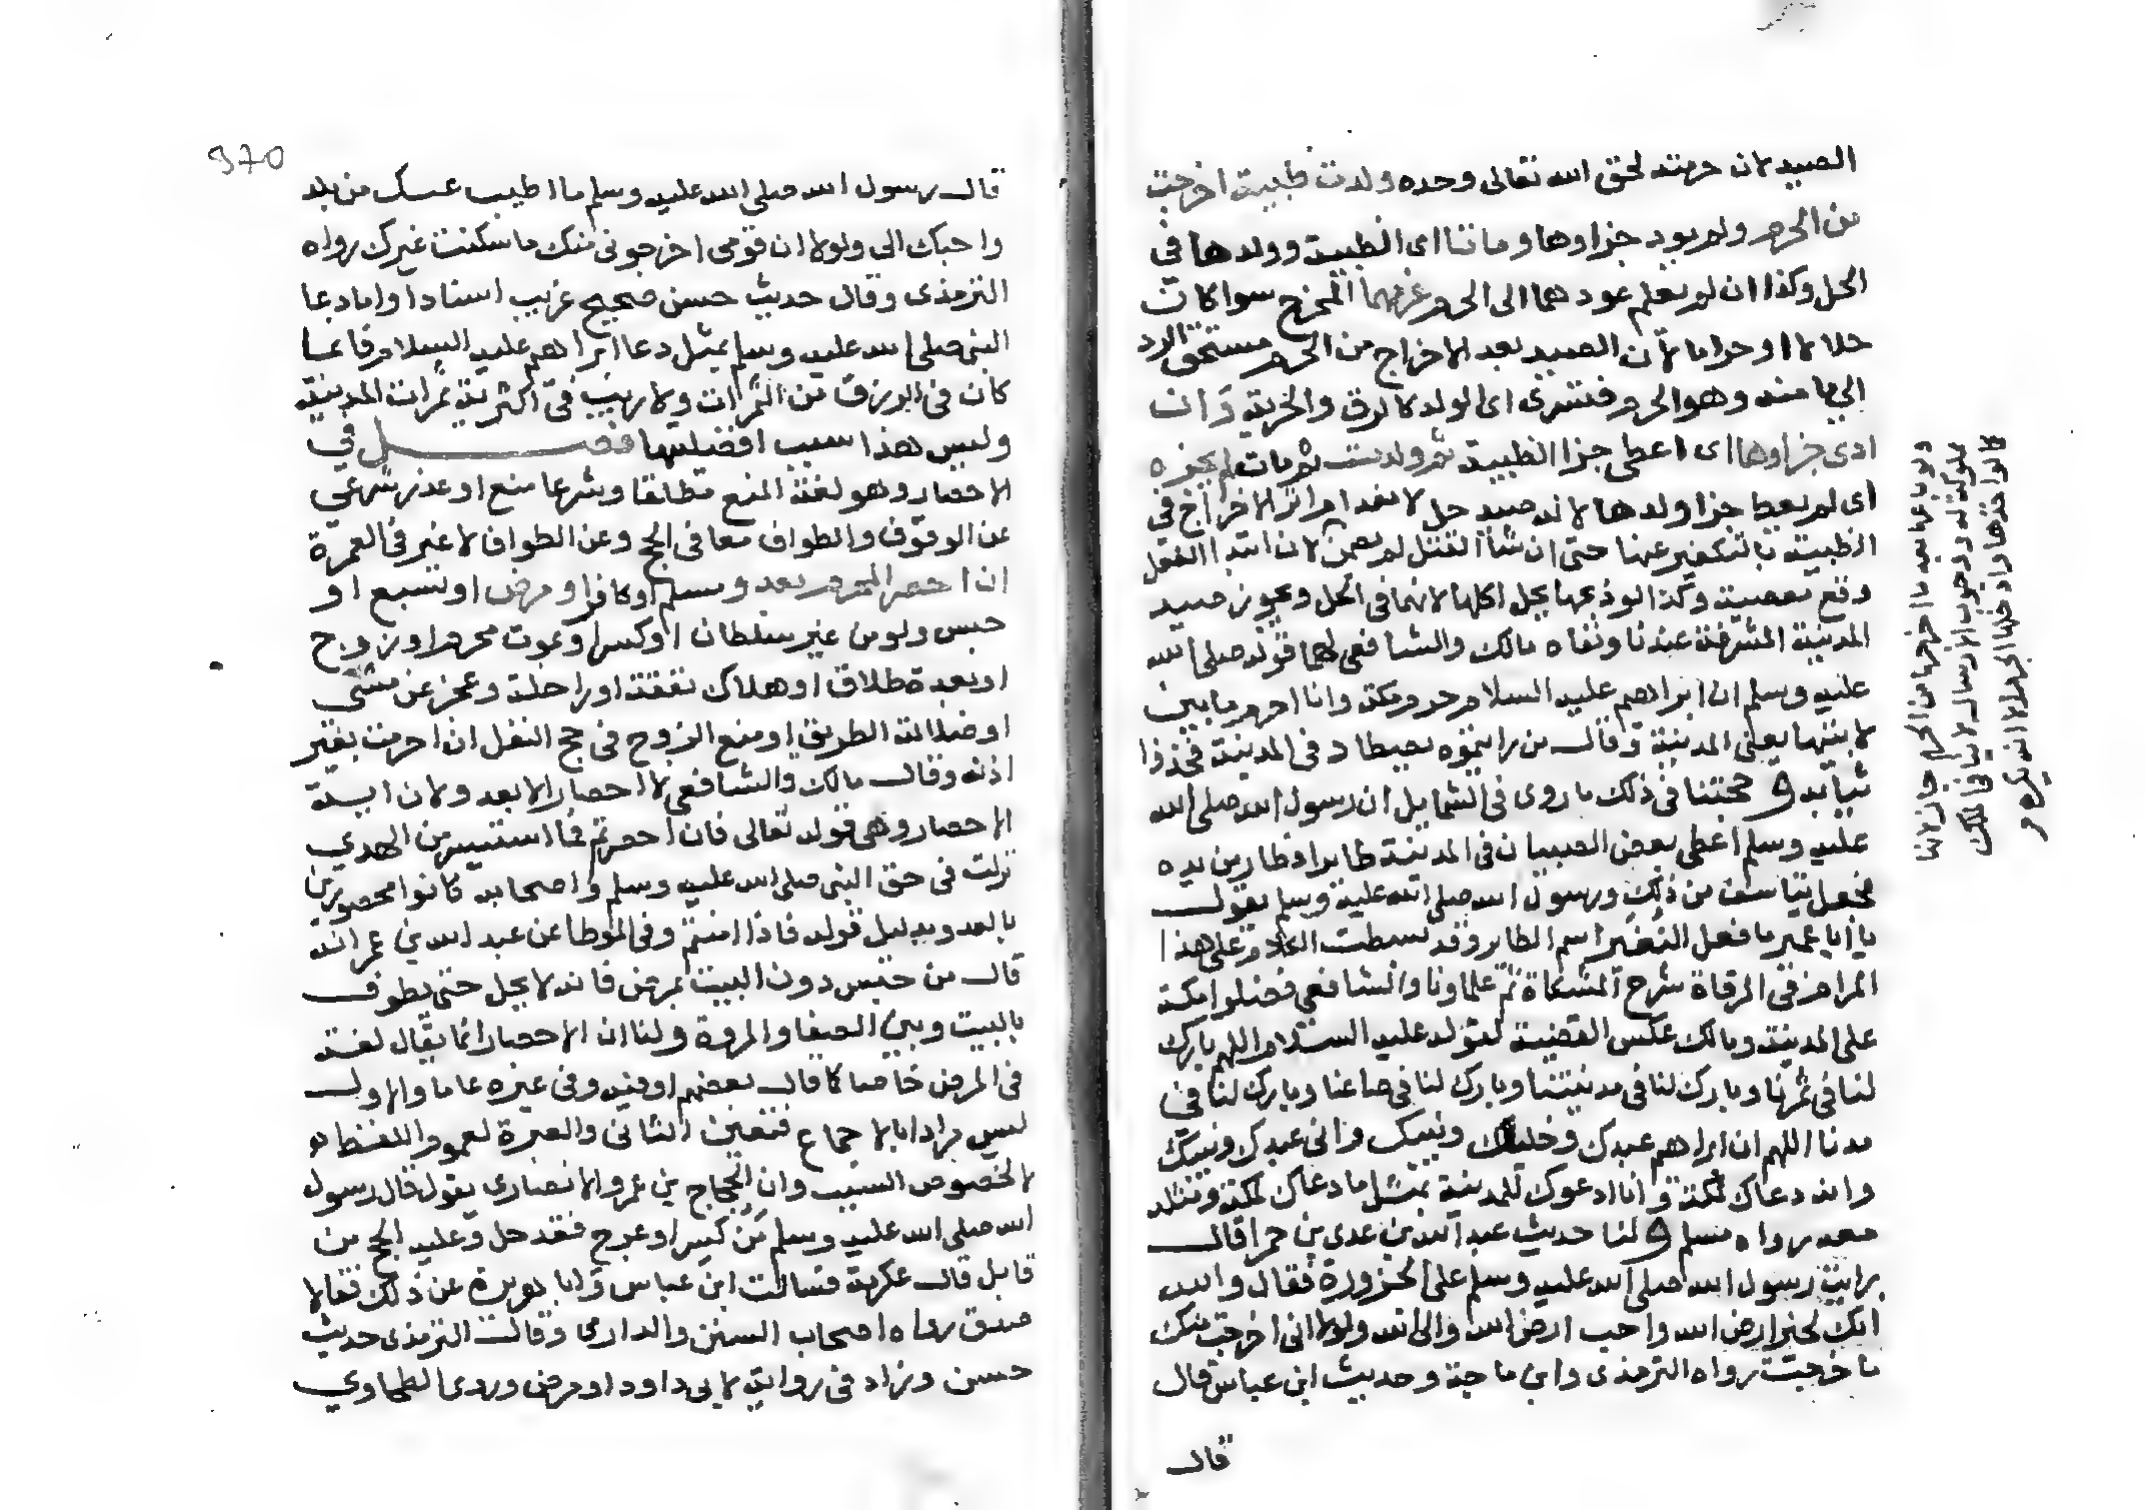 الصيد لان حرمته لحق الله تعالى وحده ولدت ظبية اخرجت
من الحرم ولم يود جزاوها وماتا اى الظبية وولدها فى
الحل وكذا ان لم يعلم عودهما الى الحرم غرمهما المخرج سوا كان
حلالا او حراما لان الصيد بعد الاخراج من الحرم مستحق الرد
الى مامنه وهو الحرم فتسرى اى الولد كالرق والحرية وان
ادى جزاوها اى اعطى جزا الظبية ثم ولدت ثم مات لم يجزه
اى لم يعط جزا ولدها لانه صيد حل لانعدام اثر الاخراج فى
الظبية بالتكفير عنها حتى ان شا القتل لم يضمن لان ابتدا الفعل
وقع معصية وكذا لو ذبحها يحل اكلها لانها فى الحل ويجوز صيد
المدينة المشرفة عندنا ونفاه مالك والشافعى لهما قوله صلى الله
عليه وسلم ان ابراهيم عليه السلام حرم مكة وانا احرم ما بين
لابتيها يعنى المدينة وقال من رايتموه يصطاد فى المدينة فخذوا
ثيابه و حجتنا فى ذلك ما روى فى الشمايل ان رسول الله صلى الله
عليه وسلم اعطى بعض الصبيان فى المدينة طايرا فطار من يده
فجعل يتاسف من ذلك ورسول الله صلى الله عليه وسلم يقول
يا ابا عمير ما فعل النغير اسم الطاير وقد بسطت الكلام على هذا
المرام فى المرقاة شرح المشكاة ثم علماونا والشافعى فضلوا مكة
على المدينة ومالك عكس القضية لقوله عليه السلام اللهم بارك
لنا فى ثمرنا وبارك لنا فى مدينتنا وبارك لنا فى صاعنا وبارك لنا فى
مدنا اللهم ان ابراهيم عبدك وخليلك ونبيك وانى عبدك ونبيك
وانه دعاك لمكة وانا ادعوك للمدينة بمثل ما دعاك لمكة ومثله
معه رواه مسلم و لنا حديث عبد الله بن عدى بن حمرا قال
رايت رسول الله صلى الله عليه وسلم على الحزورة فقال والله
انك لخير ارض الله واحب ارض الله والى الله ولولا انى اخرجت منك
ما خرجت رواه الترمذى وابن ماجة وحديث ابن عباس قال
قال
ولو باعها بعد ما اخرجها من الحرم جاز لانها
مملوكة له ووجوب الارسال لا ينافى الملك
كما لو اخذها وادخلها الحرم الا انه يكره م
970
قال رسول الله صلى الله عليه وسلم ما اطيب عسك من بلد
واحبك الى ولولا ان قومى اخرجونى منك ما سكنت غيرك رواه
الترمذى وقال حديث حسن صحيح غريب اسنادا واما دعا
النبى صلى الله عليه وسلم بمثل دعا ابراهيم عليه السلام فانما
كان فى الرزق من الثمرات ولا ريب فى اكثرية ثمرات المدينة
وليس هذا سبب افضليتها فصل فى
الاحصار وهو لغة المنع مطلقا وشرعا منع او عذر شرعى
عن الوقوف والطواف معا فى الحج وعن الطواف لا غير فى العمرة
ان احصر المحرم بعدو مسلم او كافر او مرض او سبع او
حبس ولو من غير سلطان او كسر او موت محرم او زوج
او بعدة طلاق او هلاك نفقة او راحلة وعجز عن مشى
او ضلالة الطريق او منع الزوج فى حج النفل ان احرمت بغير
اذنه وقال مالك والشافعى لا احصار الا بعدو لان اية
الاحصار وهى قوله تعالى فان احصرتم فما استيسر من الهدي
نزلت فى حق النبى صلى الله عليه وسلم واصحابه كانوا محصورين
بالعدو بدليل قوله فاذا امنتم وفى الموطا عن عبد الله بن عمر انه
قال من حبس دون البيت بمرض فانه لا يحل حتى يطوف
بالبيت وبين الصفا والمروة ولنا ان الاحصار انما يقال لغة
فى المرض خاصا كما قال بعضهم او فيه وفى غيره عاما والاول
ليس مرادا بالاجماع فتعين الثانى والعبرة لعموم اللفظ
لا لخصوص السبب وان الحجاج بن عمرو الانصارى يقول قال رسول
الله صلى الله عليه وسلم من كسر او عرج فقد حل وعليه الحج من
قابل قال عكرمة فسالت ابن عباس وابا هريرة عن ذلك فقالا
صدق رواه اصحاب السنن والدارمى وقال الترمذى حديث
حسن وزاد فى رواية لابى داود او مرض وروى الطحاوي